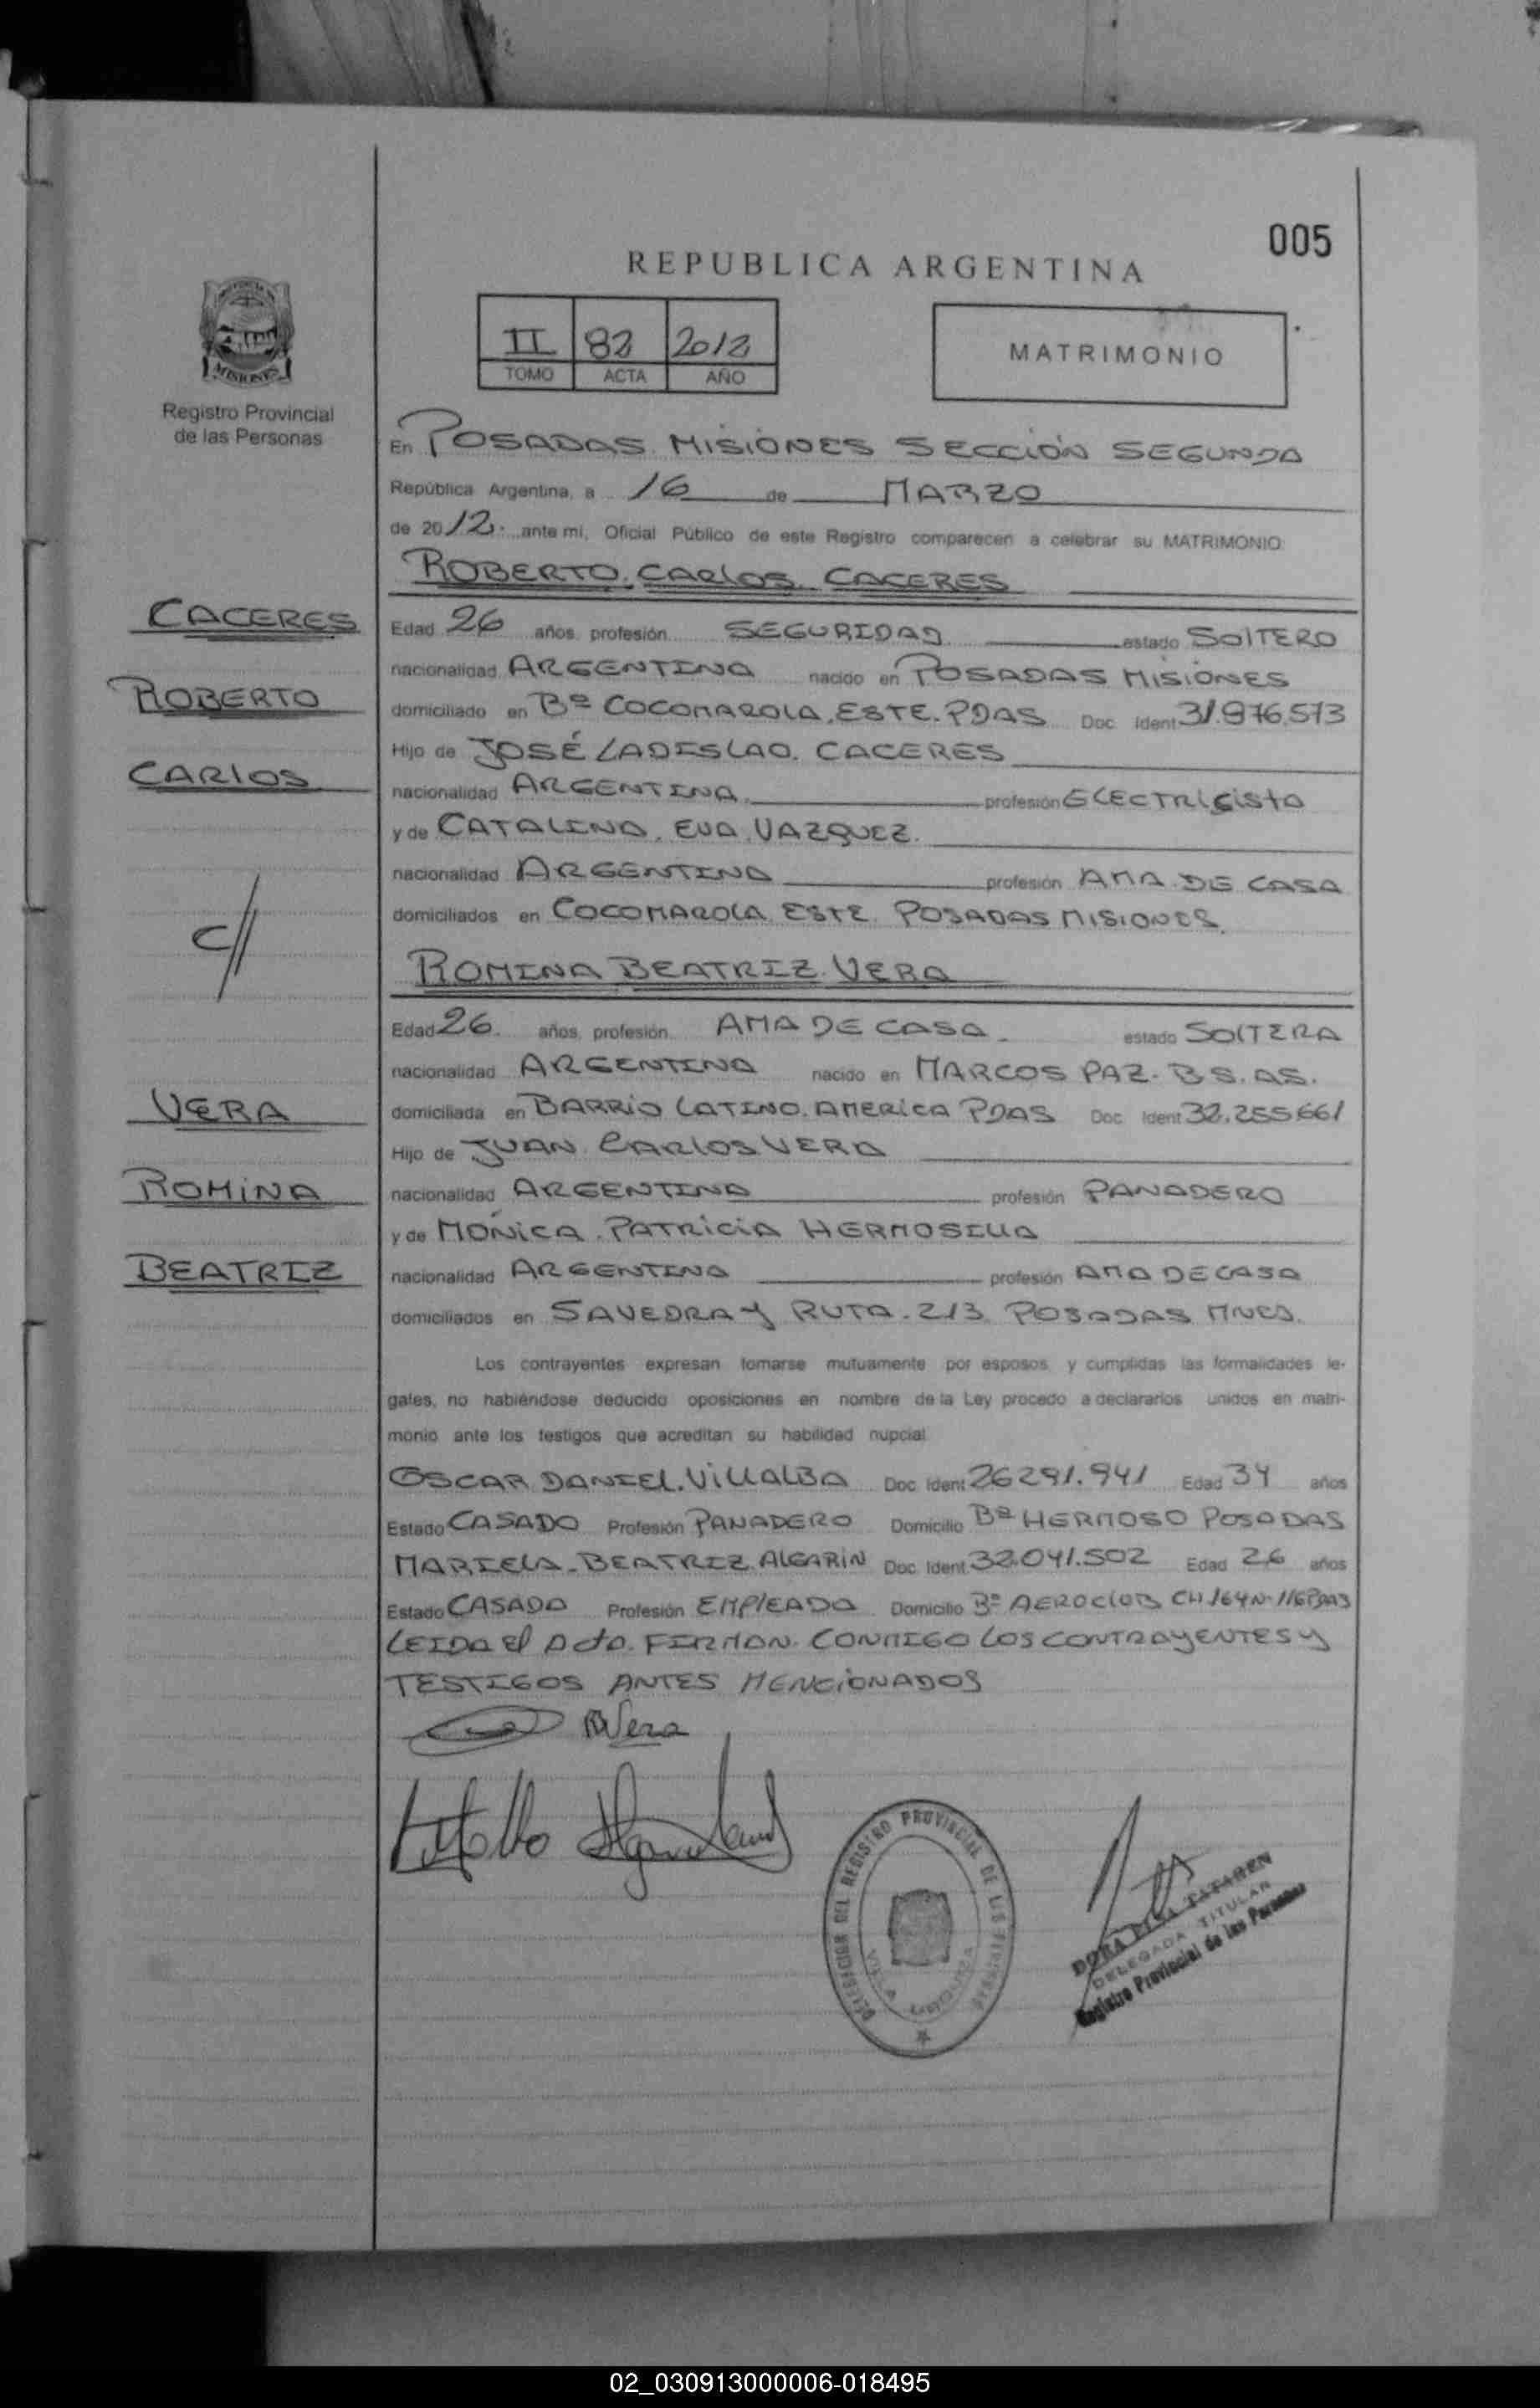 005
REPUBLICA ARGENTINA
II 82 2012
TOMO ACTA AÑO
MATRIMONIO
MISIONES
Registro Provincial
de las Personas
En POSADAS. MISIONES SECCIÓN SEGUNDA
República Argentina, a 16 de MARZO
de 2012. ante mi, Oficial Público de este Registro comparecen a celebrar su MATRIMONIO:
ROBERTO. CARLOS. CACERES
CACERES
ROBERTO
CARLOS
C//
Edad 26 años, profesión SEGURIDAD estado SOLTERO
nacionalidad ARGENTINA nacido en POSADAS MISIONES
domiciliado en Bº COCOMAROLA. ESTE. PDAS Doc. Ident. 31.976.573
Hijo de JOSÉ LADISLAO. CACERES
nacionalidad ARGENTINA profesión ELECTRICISTA
y de CATALINA. EVA. VAZQUEZ.
nacionalidad ARGENTINA profesión AMA DE CASA
domiciliados en COCOMAROLA. ESTE. POSADAS MISIONES.
ROMINA BEATRIZ. VERA
VERA
ROMINA
BEATRIZ
Edad 26. años, profesión AMA DE CASA. estado SOLTERA
nacionalidad ARGENTINA nacido en MARCOS PAZ. BS. AS.
domiciliada en BARRIO LATINO. AMERICA PDAS Doc. Ident. 32.255.661
Hijo de JUAN. CARLOS VERA
nacionalidad ARGENTINA profesión PANADERO
y de MÓNICA. PATRICIA HERMOSILLA
nacionalidad ARGENTINA profesión AMA DE CASA
domiciliados en SAVEDRA Y RUTA. 213. POSADAS MNES.
Los contrayentes expresan tomarse mutuamente por esposos y cumplidas las formalidades le-
gales, no habiéndose deducido oposiciones en nombre de la Ley procedo a declararlos unidos en matri-
monio ante los testigos que acreditan su habilidad nupcial
OSCAR DANIEL. VILLALBA Doc. Ident. 26291.941 Edad 34 años
Estado CASADO Profesión PANADERO Domicilio Bº HERMOSO POSADAS
MARIELA. BEATRIZ. ALGARIN Doc. Ident. 32.041.502 Edad 26 años
Estado CASADO Profesión EMPLEADO Domicilio Bº AEROCLUB CH 164 N- 116 PDAS
LEIDA El Acta. FIRMAN. CONMIGO LOS CONTRAYENTES Y
TESTIGOS ANTES MENCIONADOS
RVera
DELEGACION DEL REGISTRO PROVINCIAL DE LAS PERSONAS
VILLA
DELEGADA TITULAR
Registro Provincial de las Personas
02_030913000006-018495